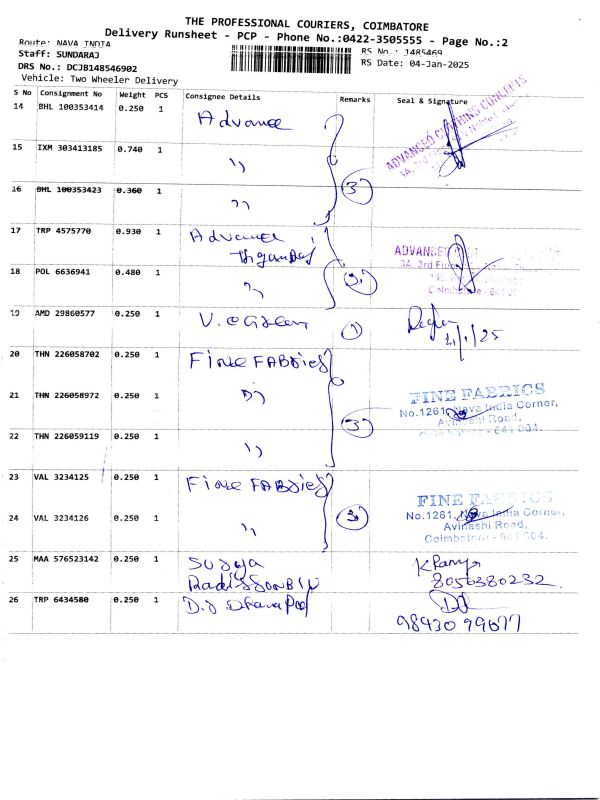 THE PROFESSIONAL COURIERS, COIMBATORE
Delivery Runsheet - PCP - Phone No.:0422-3505555 - Page No.:2
Route: NAVA INDIA
RS No.: 1485469
Staff: SUNDARAJ
RS Date: 04-Jan-2025
DRS No.: DCJB148546902
Vehicle: Two Wheeler Delivery
S No Consignment No Weight PCS Consignee Details Remarks Seal & Signature
14 BHL 100353414 0.250 1 Advance
15 IXM 303413185 0.740 1 ,,
16 BHL 100353423 0.360 1 ,, 3
17 TRP 4575770 0.930 1 Advance
ADVANCE
3A, 3rd
18 POL 6636941 0.480 1 ,,
Coimbatore
19 AMD 29860577 0.250 1 1
20 THN 226058702 0.250 1 Fine FABRICS
21 THN 226058972 0.250 1 ,,
FINE FABRICS
No.1261, Nava India Corner,
Avinashi Road,
Coimbatore - 641 004.
22 THN 226059119 0.250 1 ,, 3
23 VAL 3234125 0.250 1 Fine FABRICS
FINE FABRICS
24 VAL 3234126 0.250 1 ,,
No.1261, Nava India Corner,
Avinashi Road,
Coimbatore - 641 004.
25 MAA 576523142 0.250 1 Surya
8056380232
26 TRP 6434580 0.250 1
98430 99677